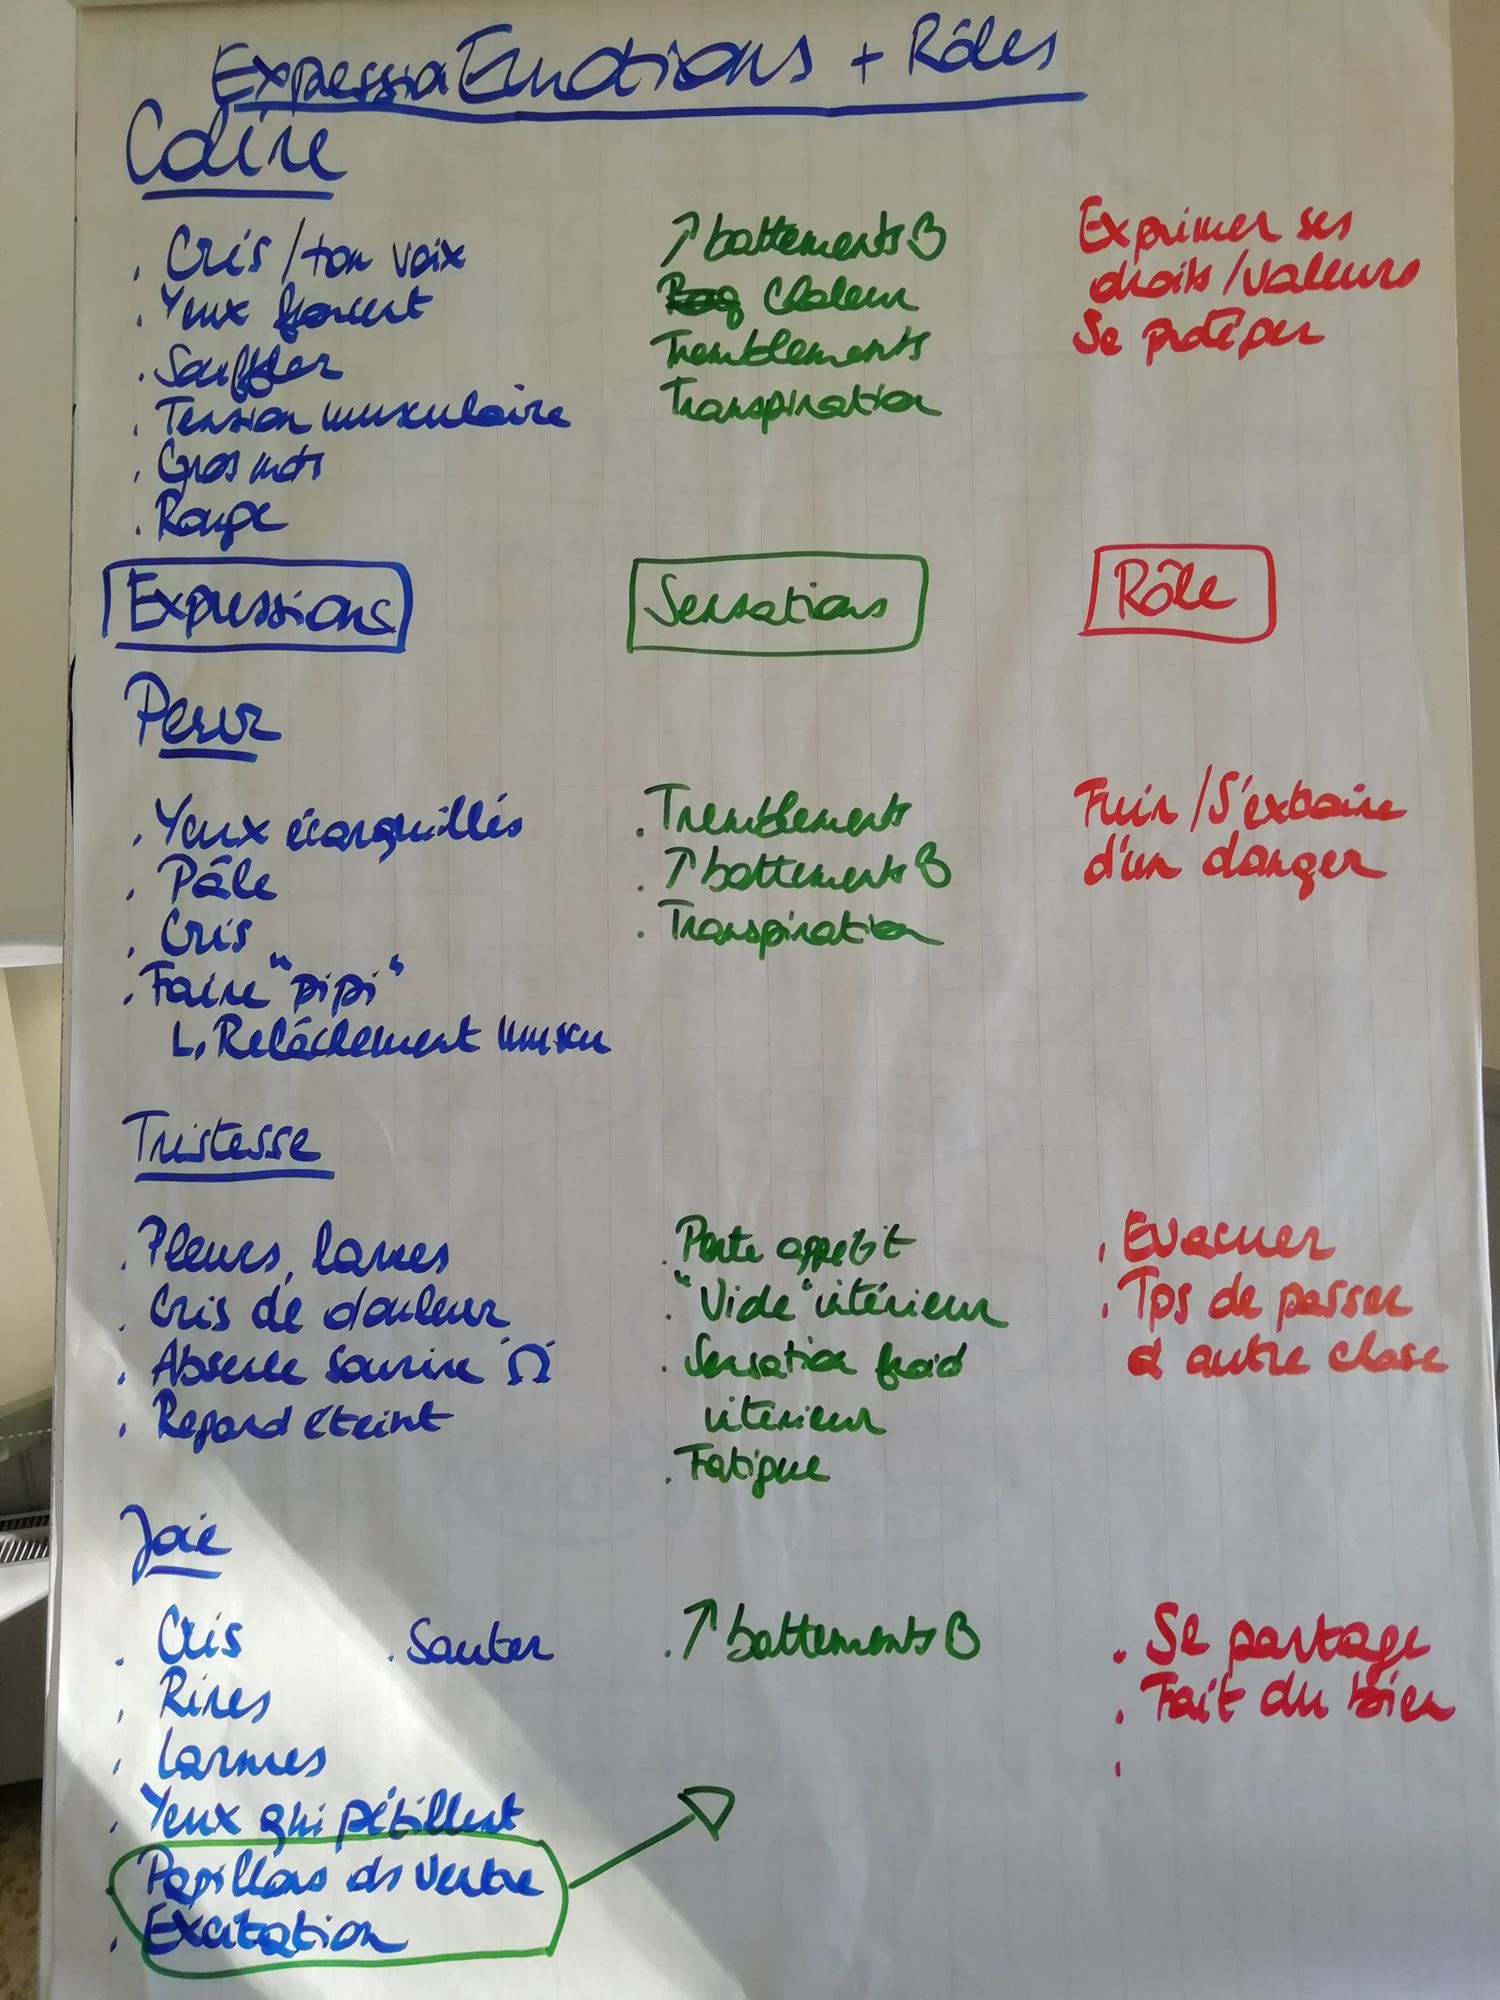 Expression Emotions + Rôles
Colère
. Cris / ton voix
. Yeux froncent
. Souffler
. Tension musculaire
. Gros mots
. Rouge
↗ battements
Chaleur
Tremblements
Transpiration
Exprimer ses
droits / valeurs
Se protéger
Expressions
Sensations
Rôle
Peur
. Yeux écarquillés
. Pâle
. Cris
. Faire "pipi"
↳ Relâchement muscu
. Tremblements
. ↗ battements
. Transpiration
Fuir / S'extraire
d'un danger
Tristesse
. Pleurs, larmes
. Cris de douleur
. Absence sourire
. Regard éteint
. Perte appétit
. "Vide" intérieur
. Sensation froid
intérieur
. Fatigue
. Evacuer
. Tps de passer
à autre chose
Joie
. Cris . Sauter
. Rires
. Larmes
. Yeux qui pétillent
. Papillons ds ventre
. Excitation
. ↗ battements
. Se partage
. Fait du bien
.